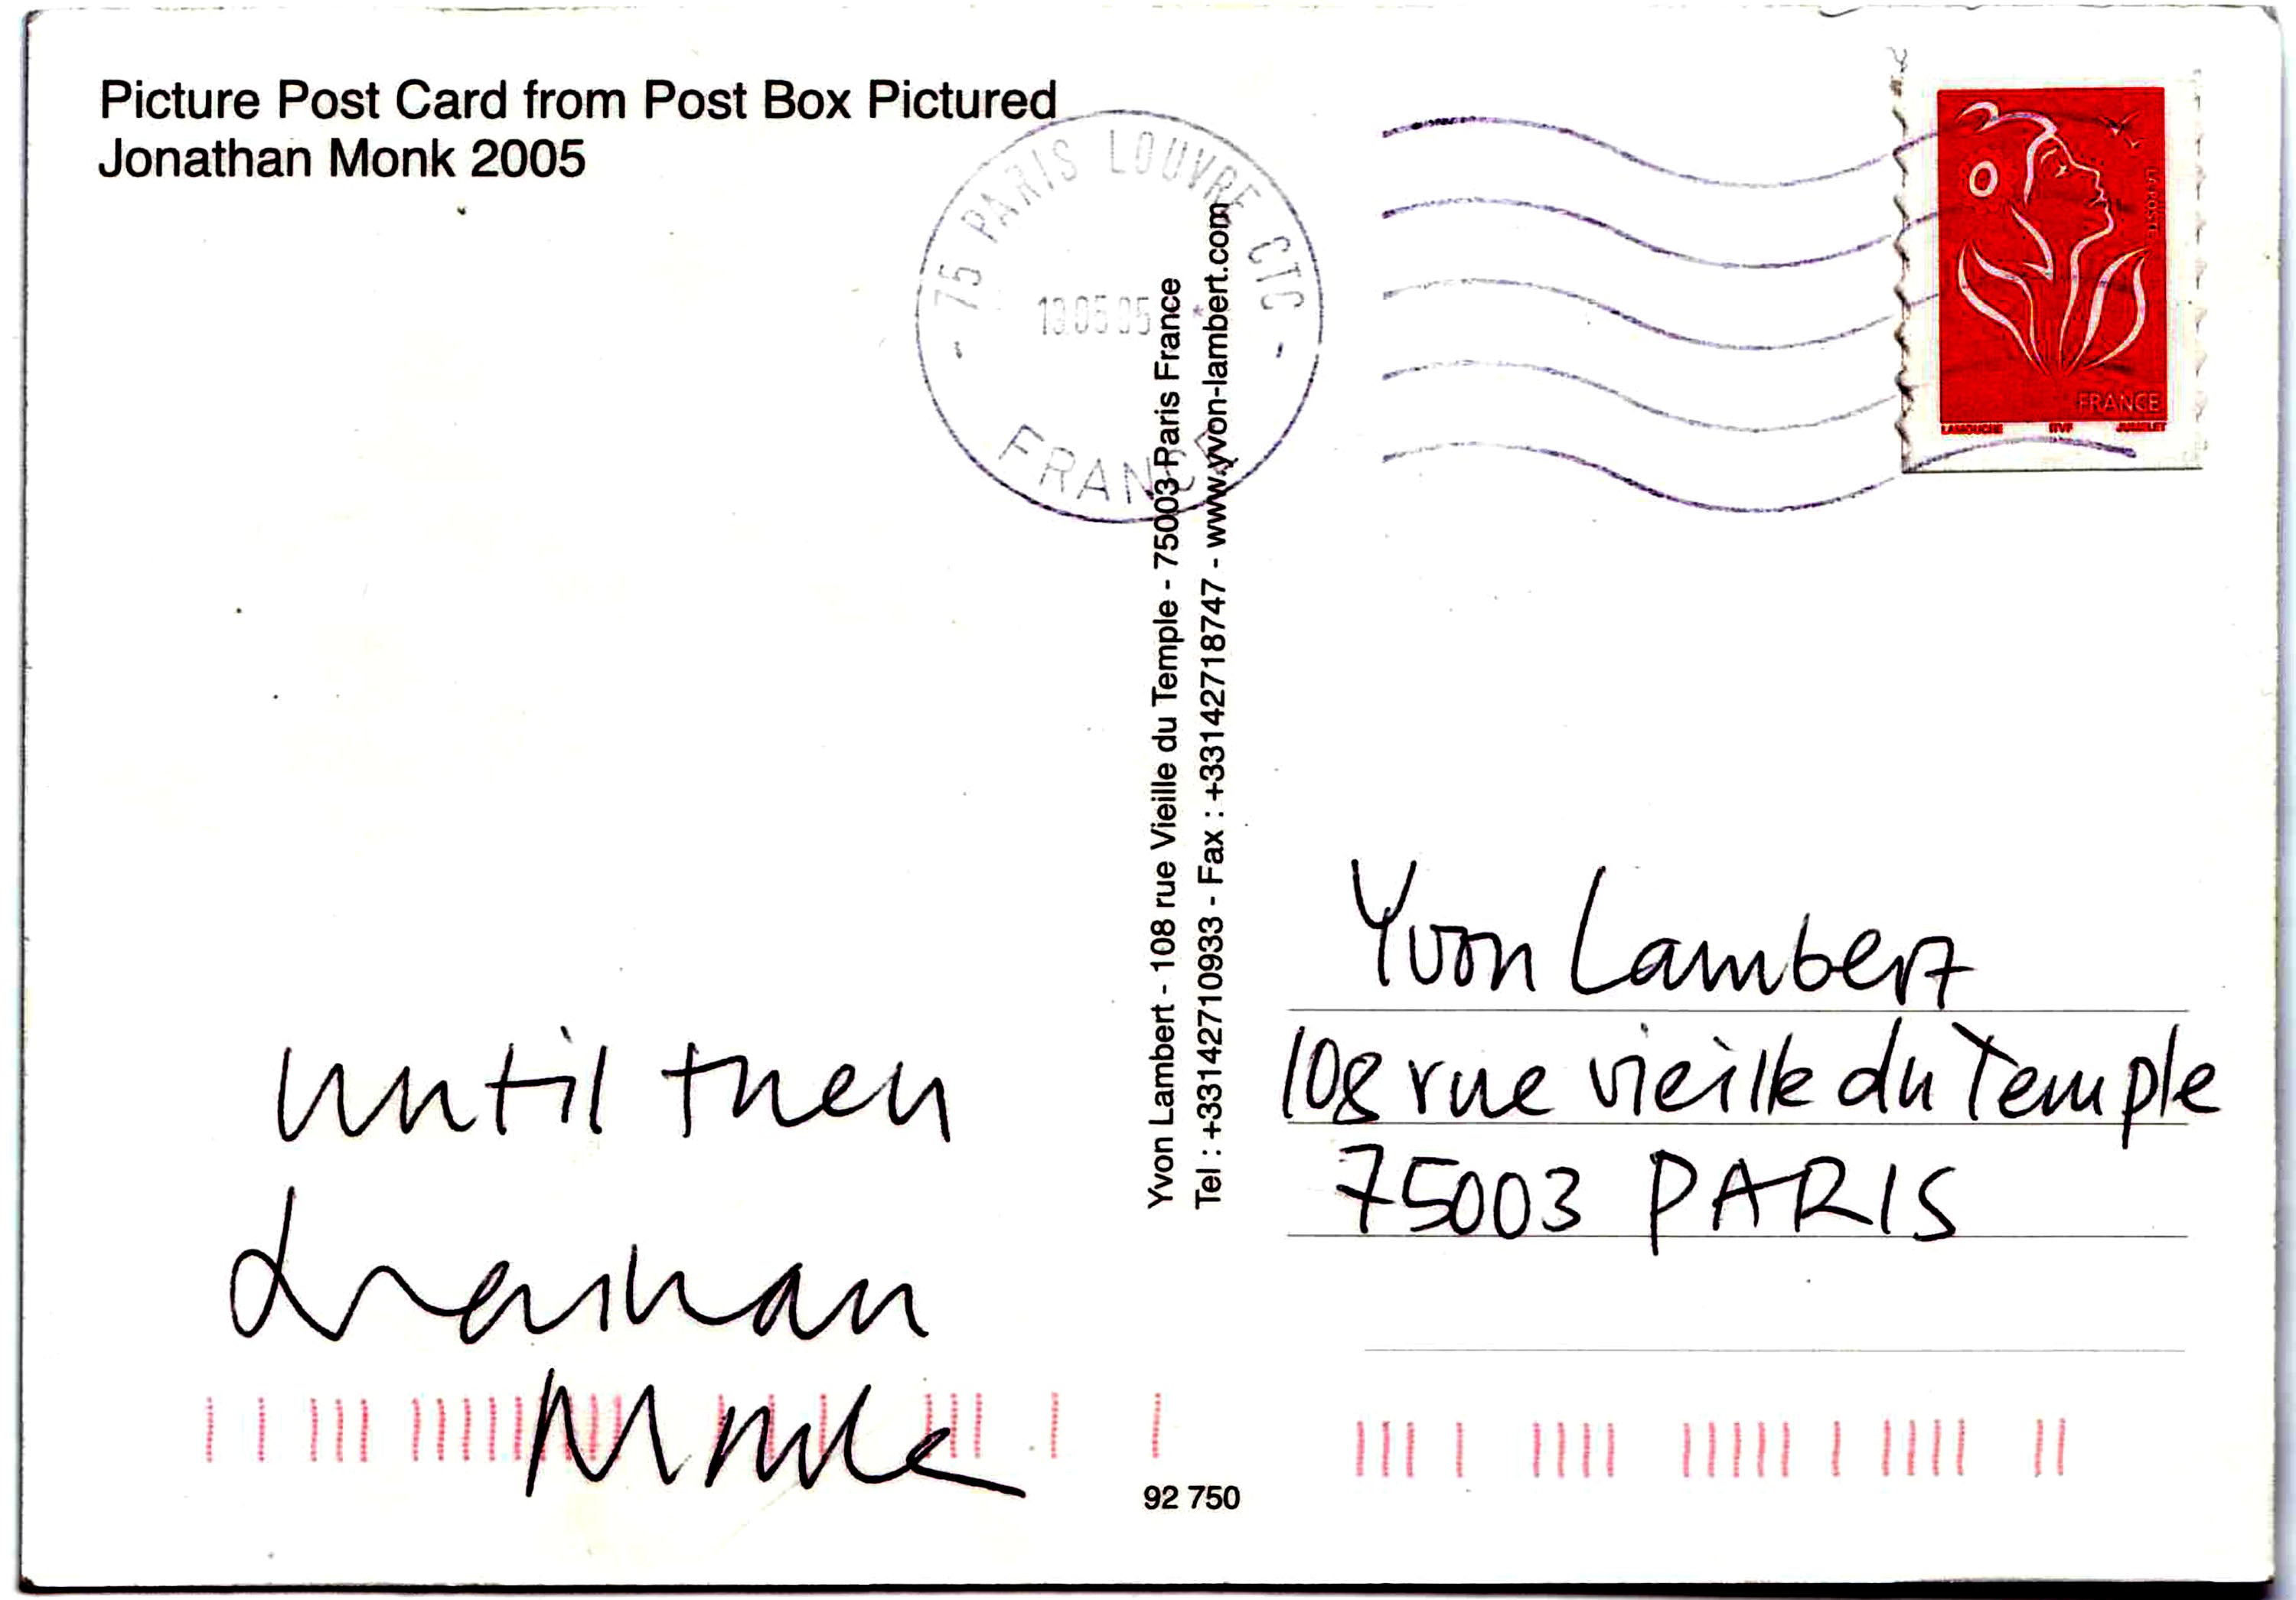 Picture Post Card from Post Box Pictured
Jonathan Monk 2005
75 PARIS LOUVRE CTC
13.05.05
FRANCE
LA POSTE
FRANCE
LAMOUCHE ITVF JUMELET
Yvon Lambert - 108 rue Vieille du Temple - 75003 Paris France
Tel : +33142710933 - Fax : +33142718747 - www.yvon-lambert.com
until then
Jonathan
Monk
Yvon Lambert
108 rue vieille du Temple
75003 PARIS
92 750